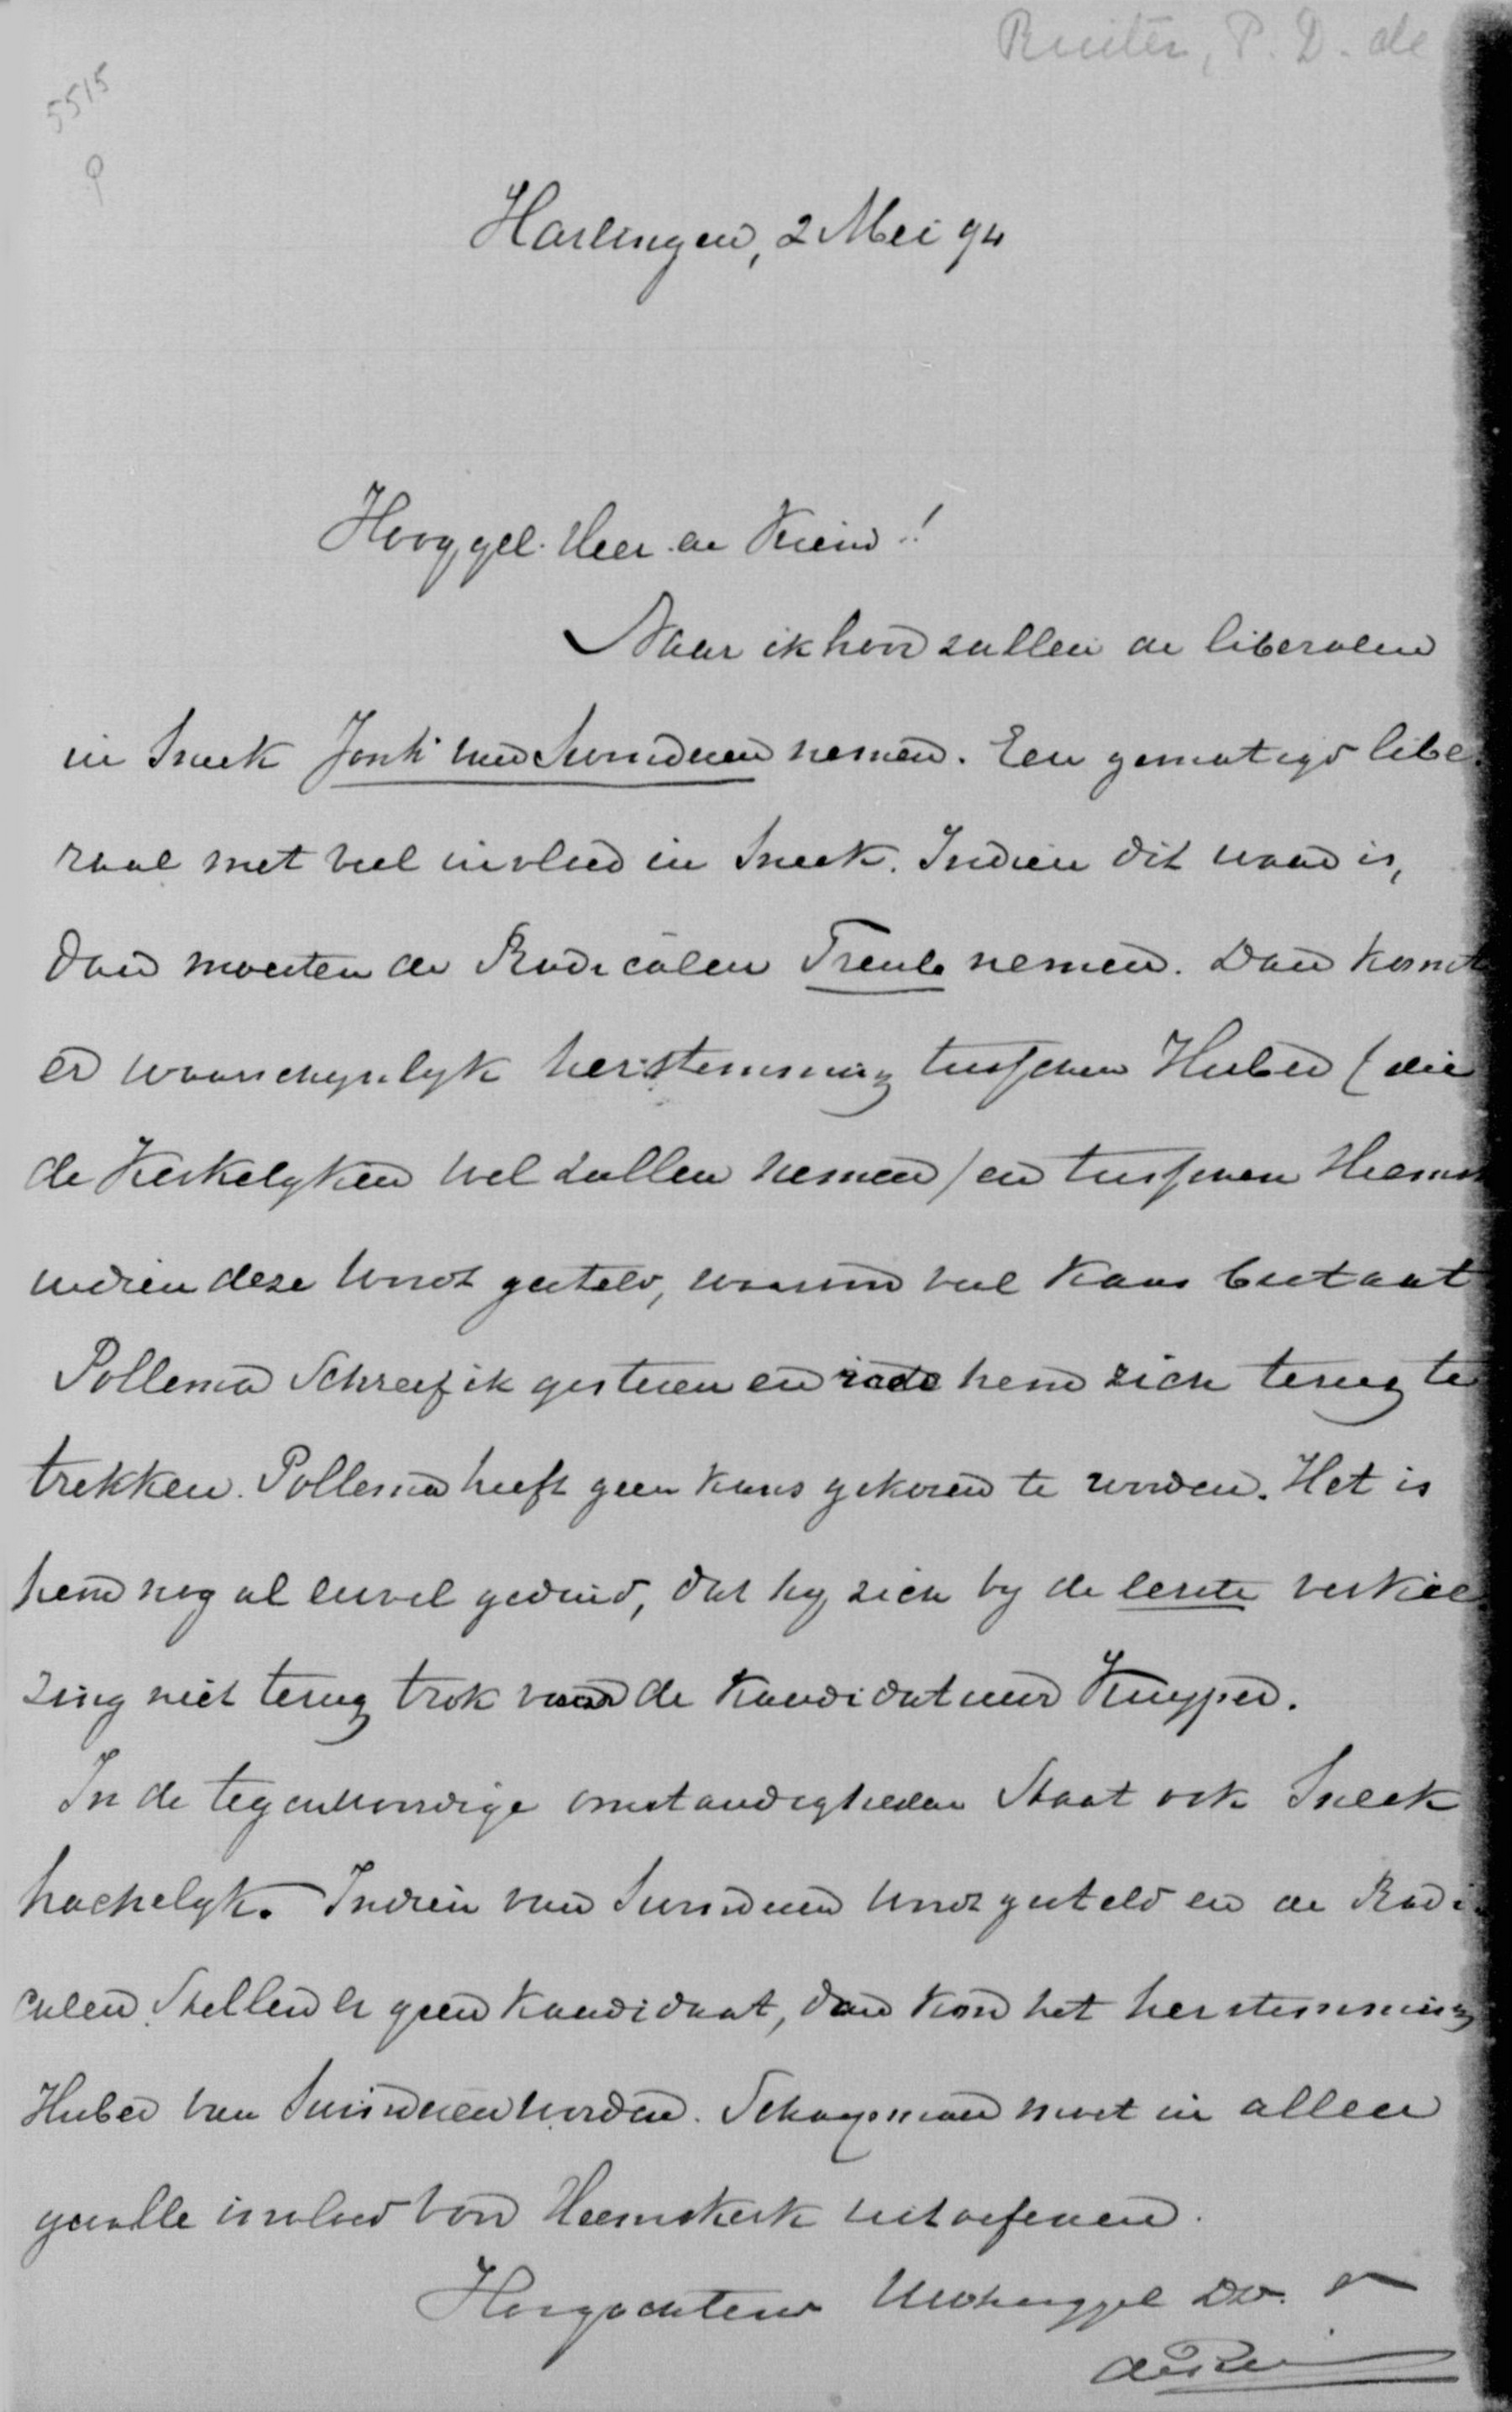 Ruiter, P. D. de
5515
9
Harlingen, 2 Mei 94
Hooggel. Heer en Vriend!
Naar ik hoor zullen de liberalen
in Sneek Jonkr van Swinderen nemen. Een gematigd libe-
raal met veel invloed in Sneek. Indien dit waar is,
dan moeten de Radicalen Treub nemen. Dan komt
er waarschynlyk herstemming tusschen Huber (die
de Kerkelyken wel zullen nemen) en tusschen Heemsk
indien deze wordt gesteld, waarvoor veel kans bestaat
Pollema schreef ik gisteren en rade hem zich terug te
trekken. Pollema heeft geen kans gekozen te worden. Het is
hem nog al euvel geduid, dat hy zich by de eerste verkie-
zing niet terug trok voor de Kandidatuur Kuyper.
In de tegenwoordige omstandigheden staat ook Sneek
hachelyk. Indien van Swinderen wordt gesteld en de Radi-
calen stellen er geen Kandidaat, dan kon het herstemming
Huber van Swinderen worden. Schaepman moet in allen
gevalle invloed voor Heemskerk uitoefenen.
Hoogachtend UwHooggel Dw. Dr